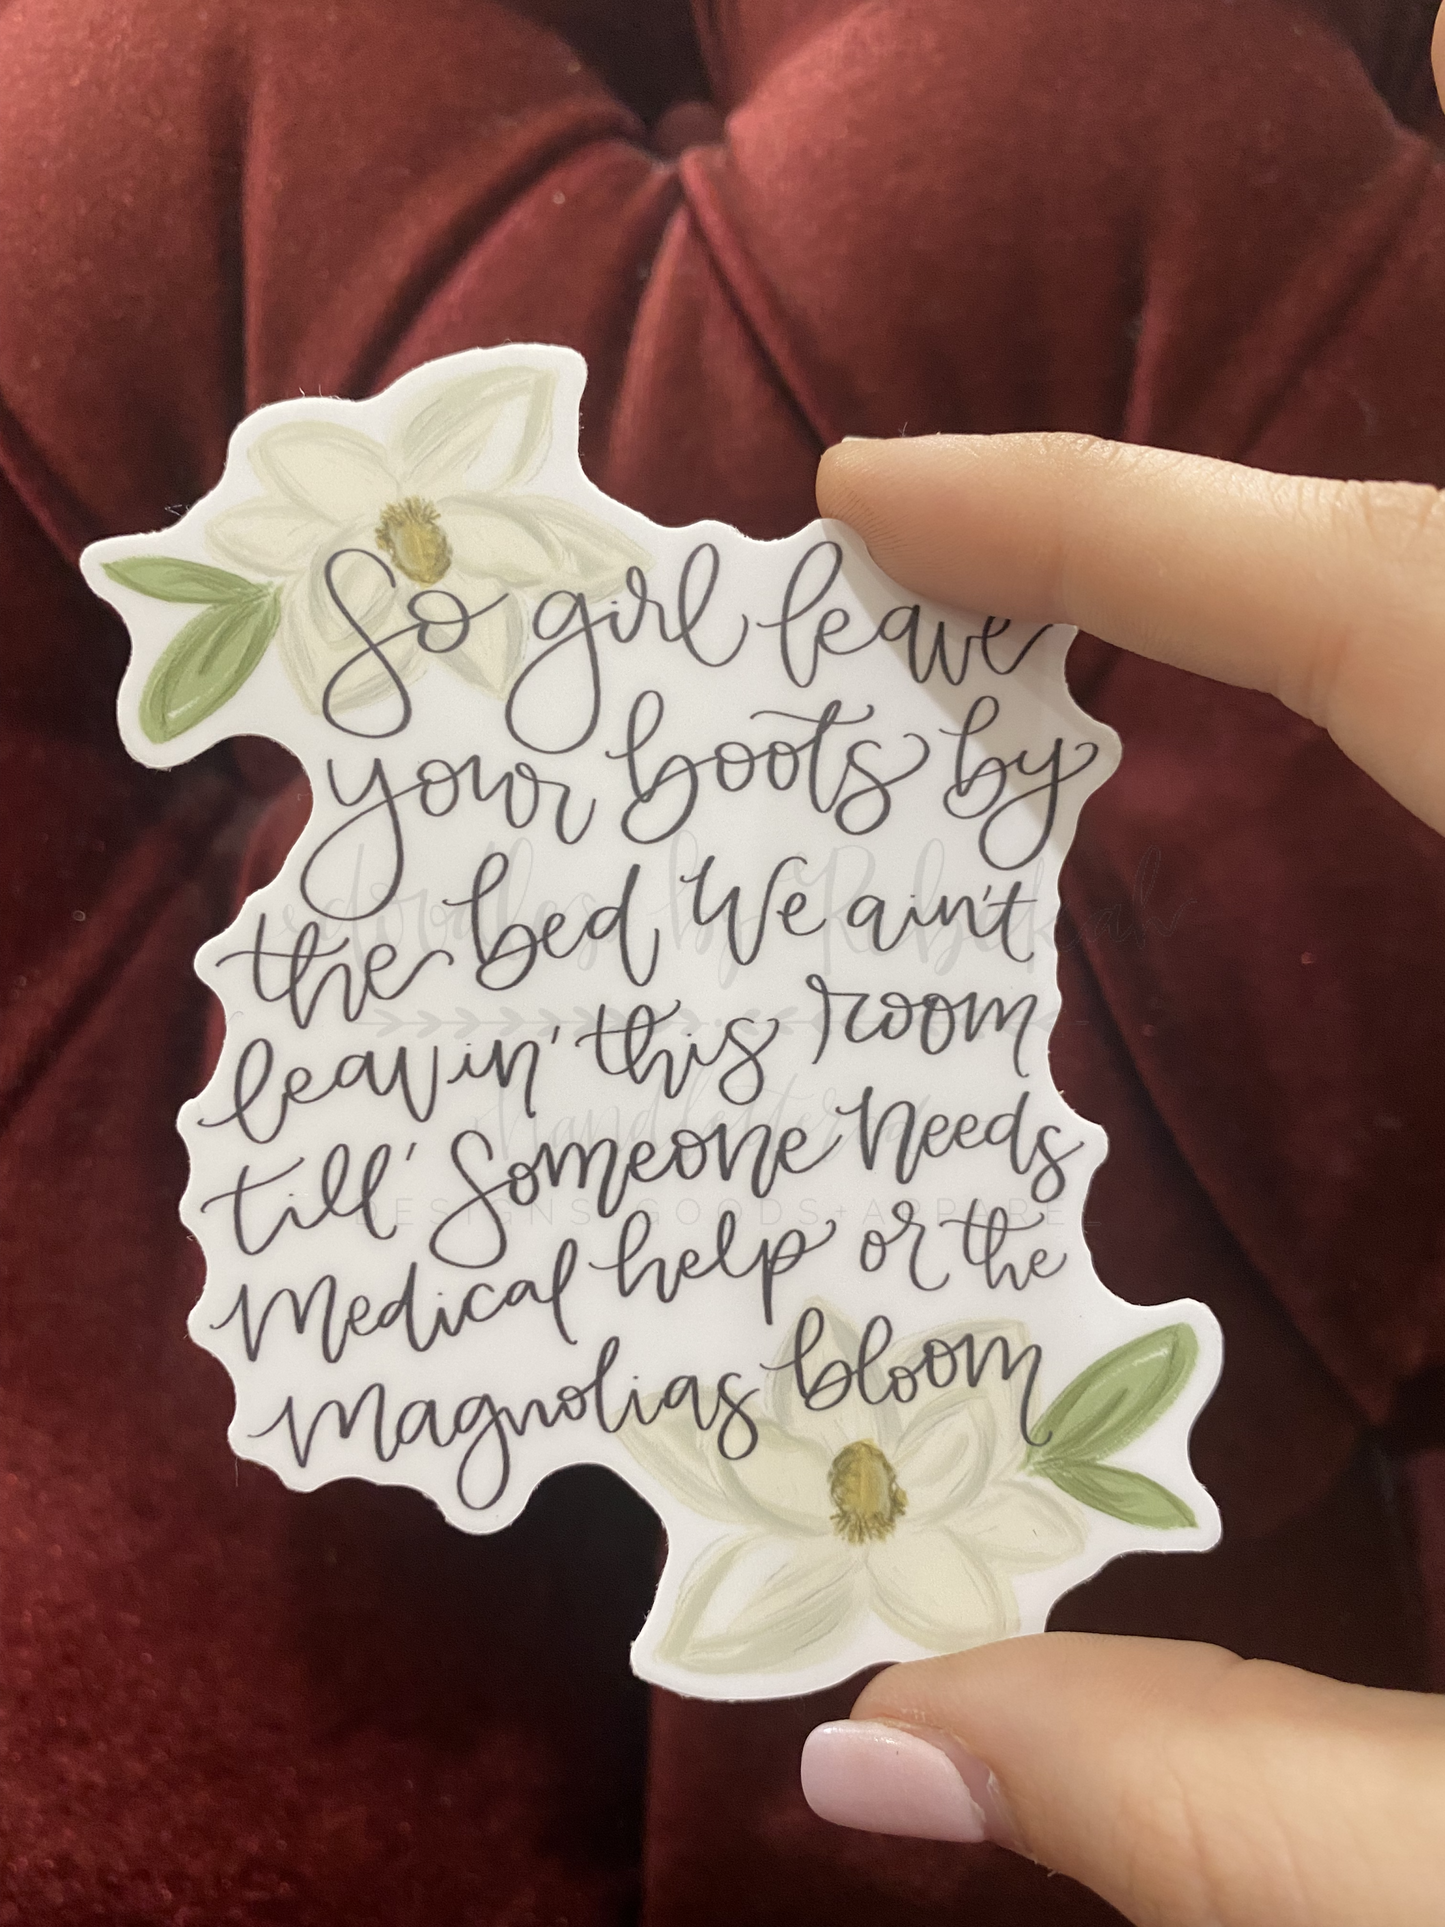 So girl leave
your boots by
the bed We ain't
leavin' this room
till' Someone needs
Medical help or the
magnolias bloom
doodles by Rebekah
handlettered
DESIGNS GOODS + APPAREL